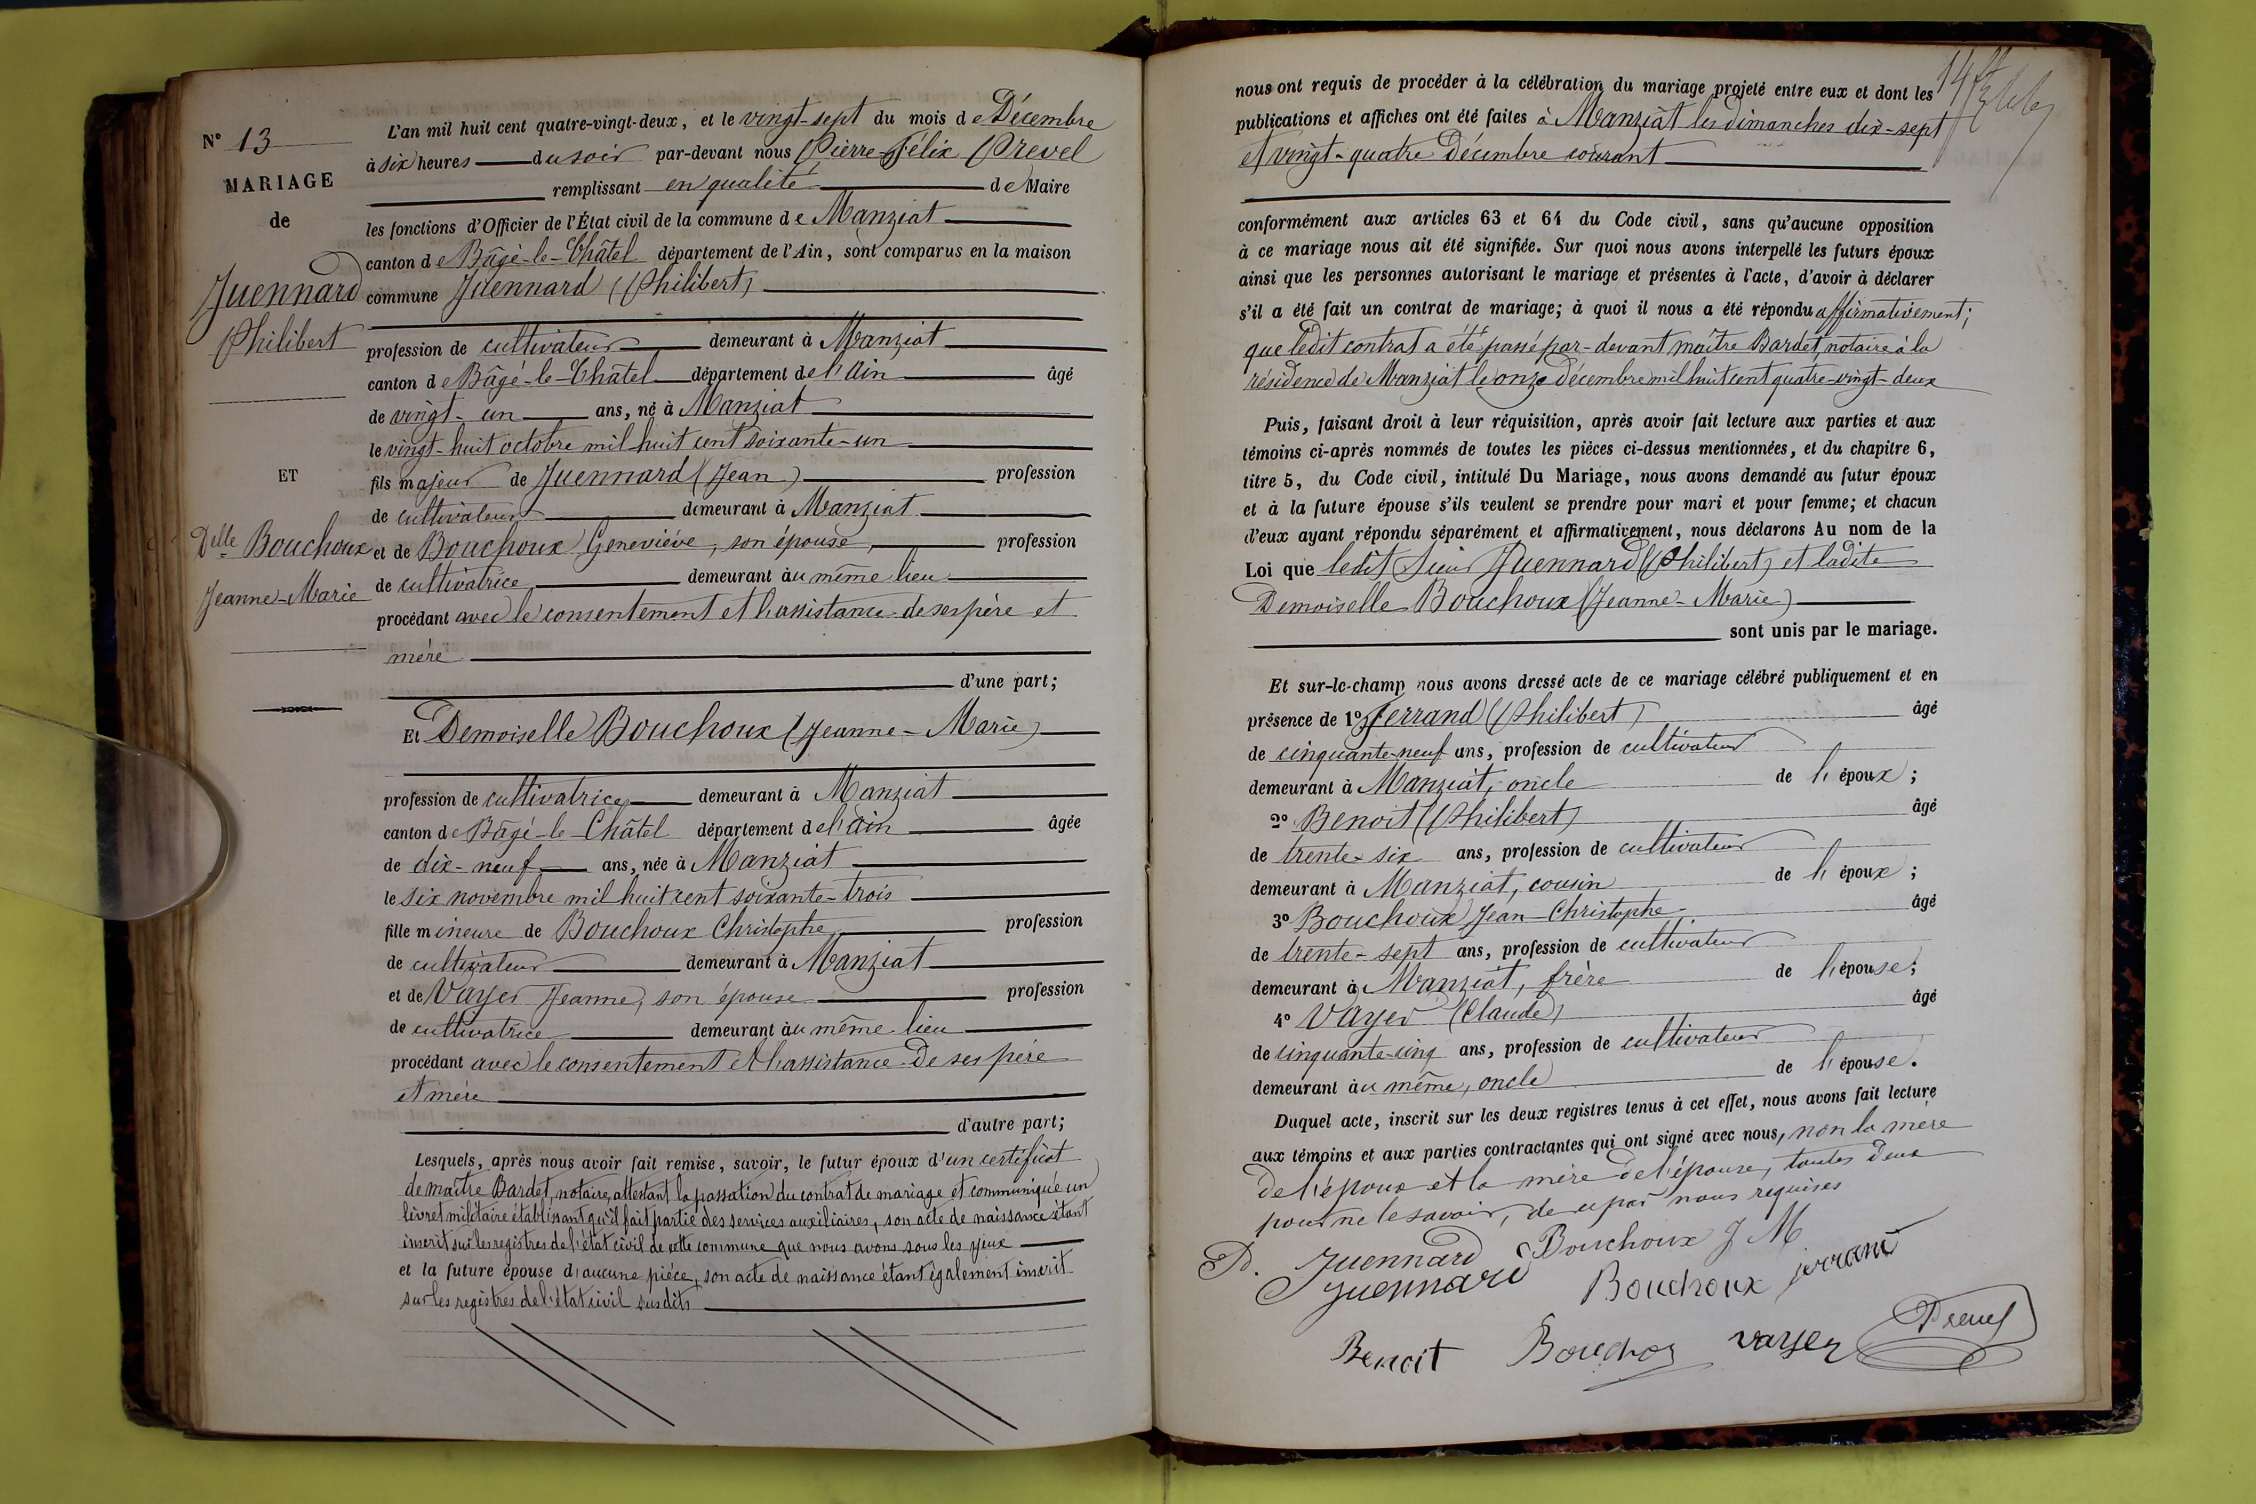 N° 13
MARIAGE
de
Juennard
Philibert
ET
Delle Bouchoux
Jeanne-Marie
L'an mil huit cent quatre-vingt-deux, et le vingt-sept du mois de Décembre
à six heures du soir par-devant nous Pierre-Félix Prevel
remplissant en qualité de Maire
les fonctions d'Officier de l'État civil de la commune de Manziat
canton de Bâgé-le-Châtel département de l'Ain, sont comparus en la maison
commune Juennard (Philibert)
profession de cultivateur demeurant à Manziat
canton de Bâgé-le-Châtel département de l'Ain âgé
de vingt-un ans, né à Manziat
le vingt-huit octobre mil huit cent soixante-un
fils majeur de Juennard (Jean) profession
de cultivateur demeurant à Manziat
et de Bouchoux Geneviève, son épouse, profession
de cultivatrice demeurant au même lieu
procédant avec le consentement et l'assistance de ses père et
mère
d'une part;
Et Demoiselle Bouchoux (Jeanne-Marie)
profession de cultivatrice demeurant à Manziat
canton de Bâgé-le-Châtel département de l'Ain âgée
de dix-neuf ans, née à Manziat
le six novembre mil huit cent soixante-trois
fille mineure de Bouchoux Christophe, profession
de cultivateur demeurant à Manziat
et de Vayer Jeanne, son épouse profession
de cultivatrice demeurant au même lieu
procédant avec le consentement et l'assistance de ses père
et mère
d'autre part;
Lesquels, après nous avoir fait remise, savoir, le futur époux d'un certificat
de maître Bardet, notaire, attestant la passation du contrat de mariage et communiqué un
livret militaire établissant qu'il fait partie des services auxiliaires, son acte de naissance étant
inscrit sur les registres de l'état civil de cette commune que nous avons sous les yeux
et la future épouse d'aucune pièce, son acte de naissance étant également inscrit
sur les registres de l'état civil susdits
nous ont requis de procéder à la célébration du mariage projeté entre eux et dont les
publications et affiches ont été faites à Manziat les dimanches dix-sept
et vingt-quatre Décembre courant
conformément aux articles 63 et 64 du Code civil, sans qu'aucune opposition
à ce mariage nous ait été signifiée. Sur quoi nous avons interpellé les futurs époux
ainsi que les personnes autorisant le mariage et présentes à l'acte, d'avoir à déclarer
s'il a été fait un contrat de mariage; à quoi il nous a été répondu affirmativement;
que ledit contrat a été passé par-devant maître Bardet, notaire à la
résidence de Manziat le onze Décembre mil huit cent quatre-vingt-deux
Puis, faisant droit à leur réquisition, après avoir fait lecture aux parties et aux
témoins ci-après nommés de toutes les pièces ci-dessus mentionnées, et du chapitre 6,
titre 5, du Code civil, intitulé Du Mariage, nous avons demandé au futur époux
et à la future épouse s'ils veulent se prendre pour mari et pour femme; et chacun
d'eux ayant répondu séparément et affirmativement, nous déclarons Au nom de la
Loi que ledit Sieur Juennard (Philibert) et ladite
Demoiselle Bouchoux (Jeanne-Marie)
sont unis par le mariage.
Et sur-le-champ nous avons dressé acte de ce mariage célébré publiquement et en
présence de 1° Ferrand (Philibert) âgé
de cinquante-neuf ans, profession de cultivateur
demeurant à Manziat, oncle de l'époux;
2° Benoit (Philibert) âgé
de trente-six ans, profession de cultivateur
demeurant à Manziat, cousin de l'époux;
3° Bouchoux Jean-Christophe, âgé
de trente-sept ans, profession de cultivateur
demeurant à Manziat, frère de l'épouse;
4° Vayer (Claude) âgé
de cinquante-cinq ans, profession de cultivateur
demeurant au même, oncle de l'épouse.
Duquel acte, inscrit sur les deux registres tenus à cet effet, nous avons fait lecture
aux témoins et aux parties contractantes qui ont signé avec nous, non la mère
de l'époux et la mère de l'épouse, toutes deux
pour ne le savoir, de ce par nous requises
P. Juennard Bouchoux J M
Juennard Bouchoux ferrand
Benoit Bouchox vayer Prevel